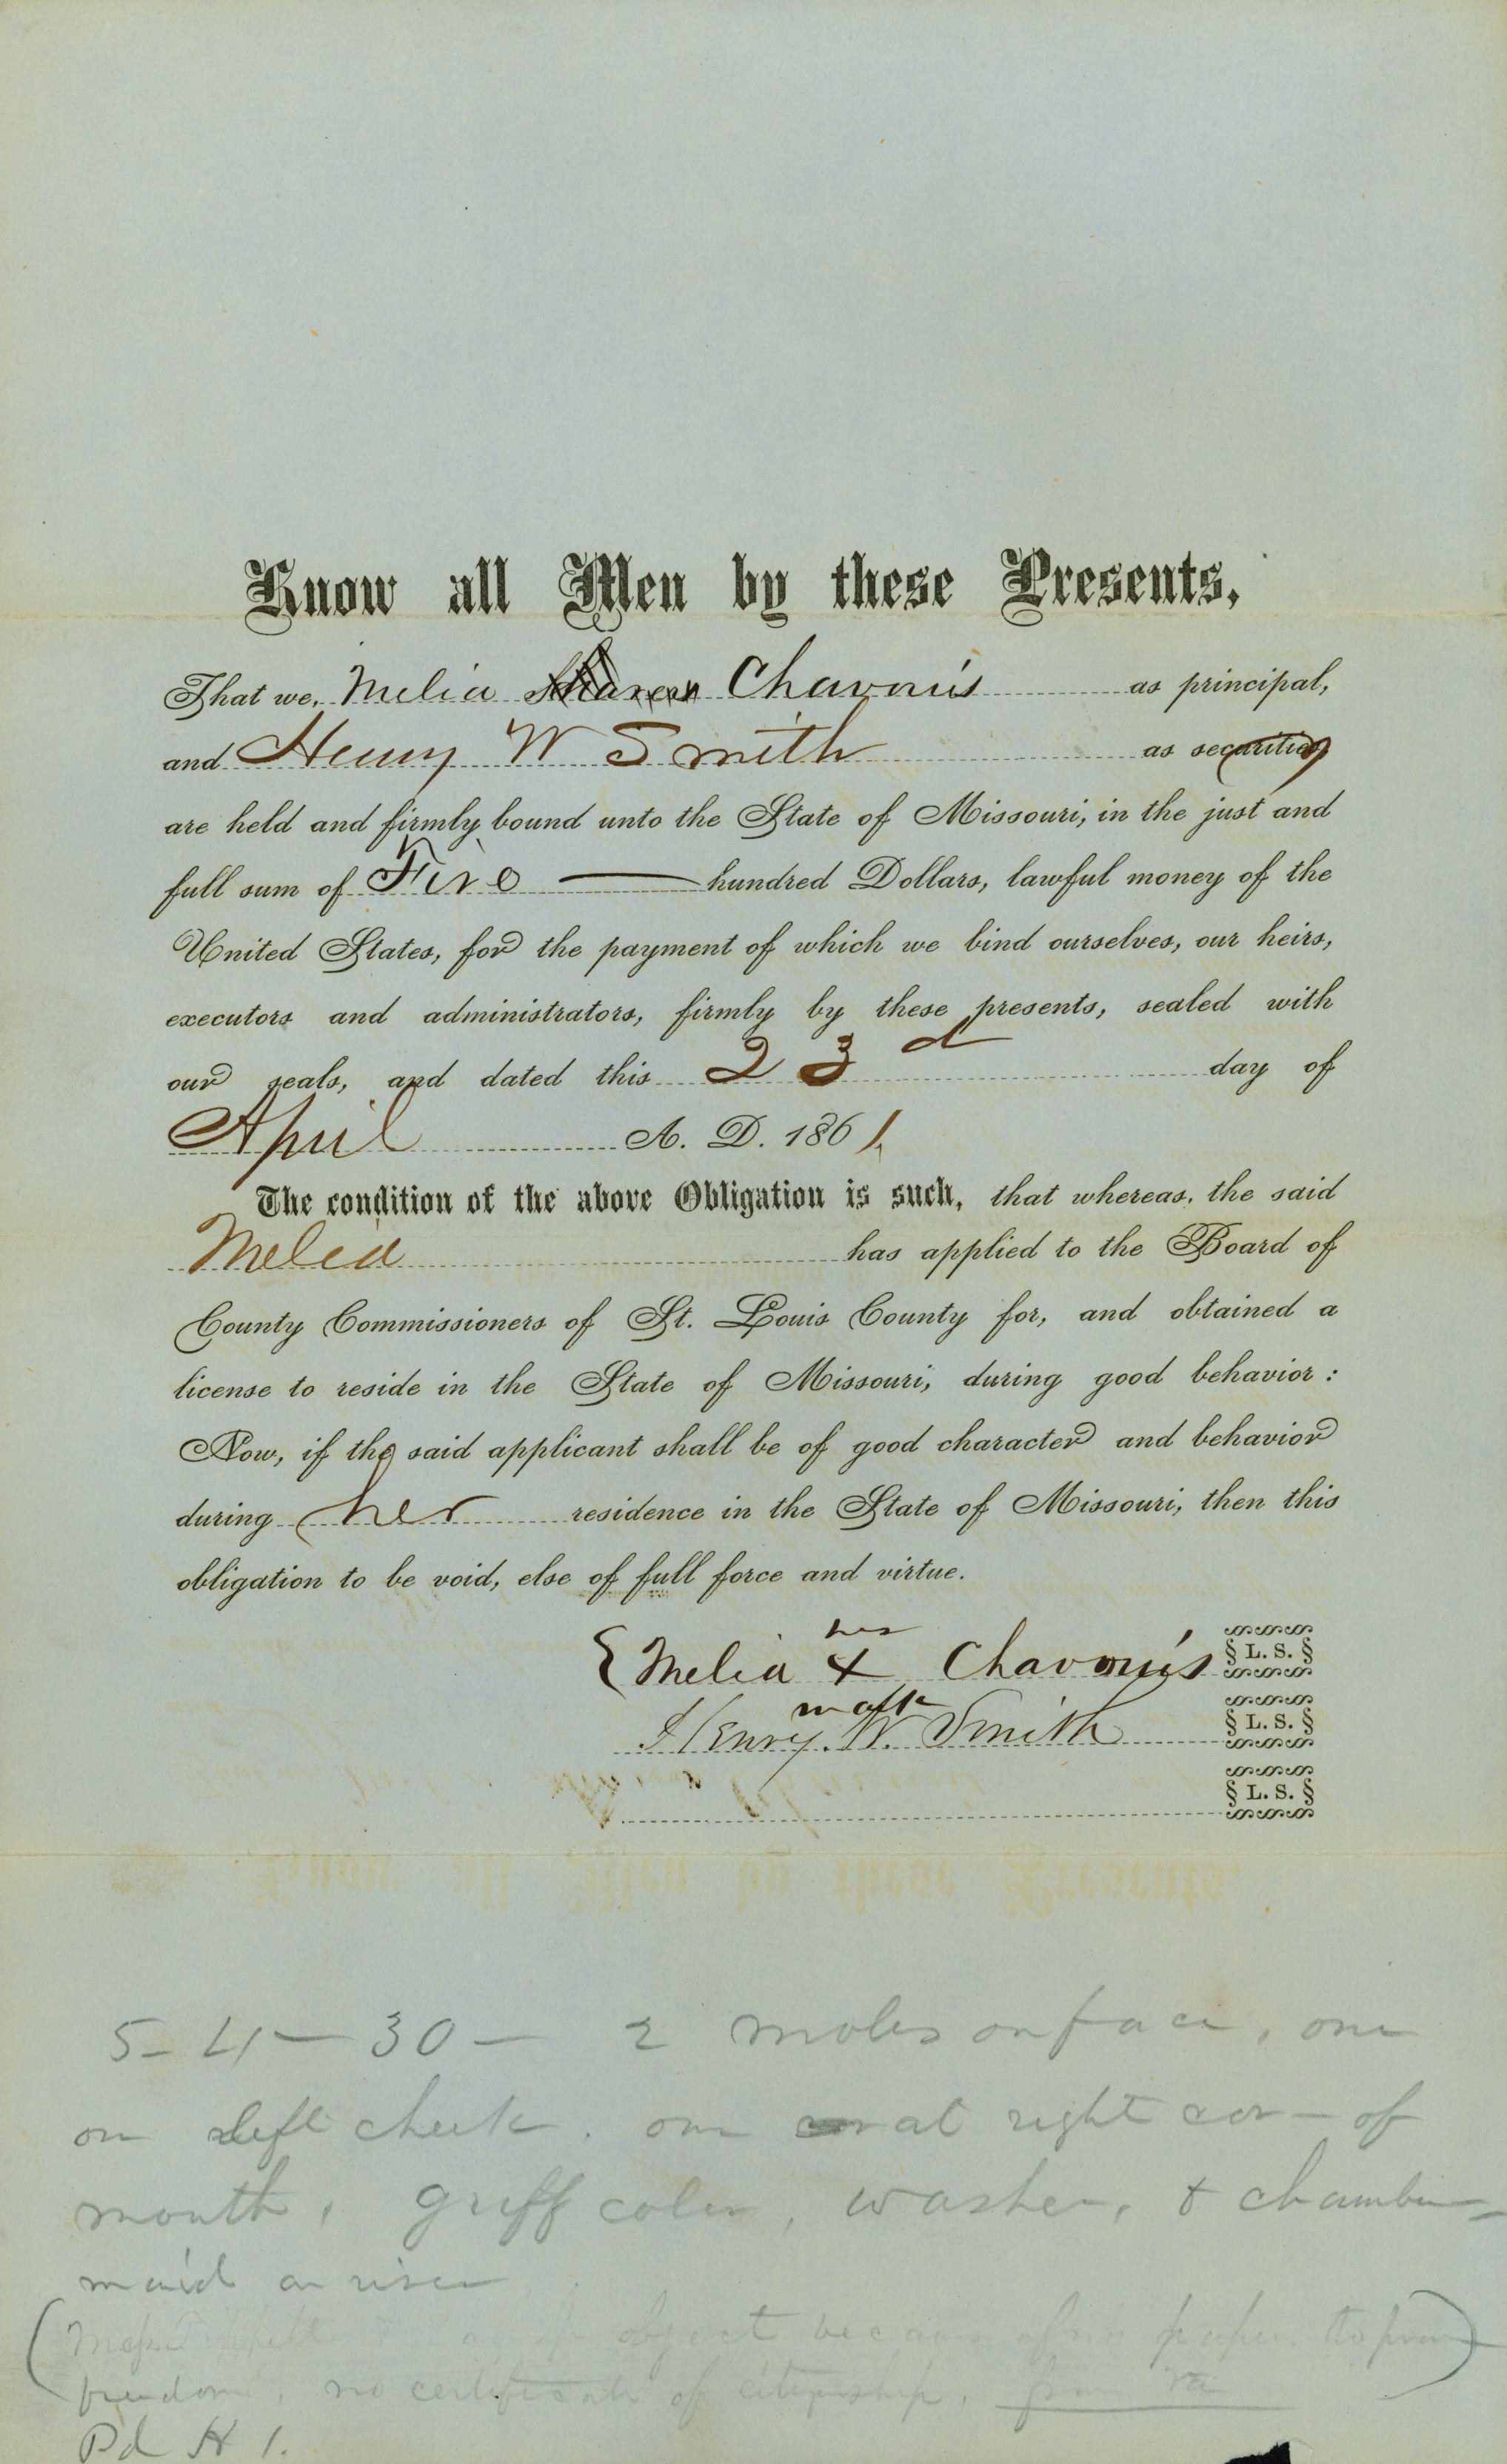 Know all Men by these Presents,
That we, Melia Chavous as principal,
and Henry W Smith as security
are held and firmly bound unto the State of Missouri, in the just and
full sum of Five — hundred Dollars, lawful money of the
United States, for the payment of which we bind ourselves, our heirs,
executors and administrators, firmly by these presents, sealed with
our seals, and dated this 23d day of
April A. D. 1861.
The condition of the above Obligation is such, that whereas, the said
Melia has applied to the Board of
County Commissioners of St. Louis County for, and obtained a
license to reside in the State of Missouri, during good behavior:
Now, if the said applicant shall be of good character and behavior
during her residence in the State of Missouri, then this
obligation to be void, else of full force and virtue.
her
Melia X Chavous L. S.
mark
Henry. W. Smith L. S.
L. S.
5-4-30- 2 moles on face, one
on left cheek. one at right cor- of
mouth, griff color, washer, & chamber-
maid on river
object because of no papers to prove
freedom, no certificate of citizenship, from Va
Pd H 1.